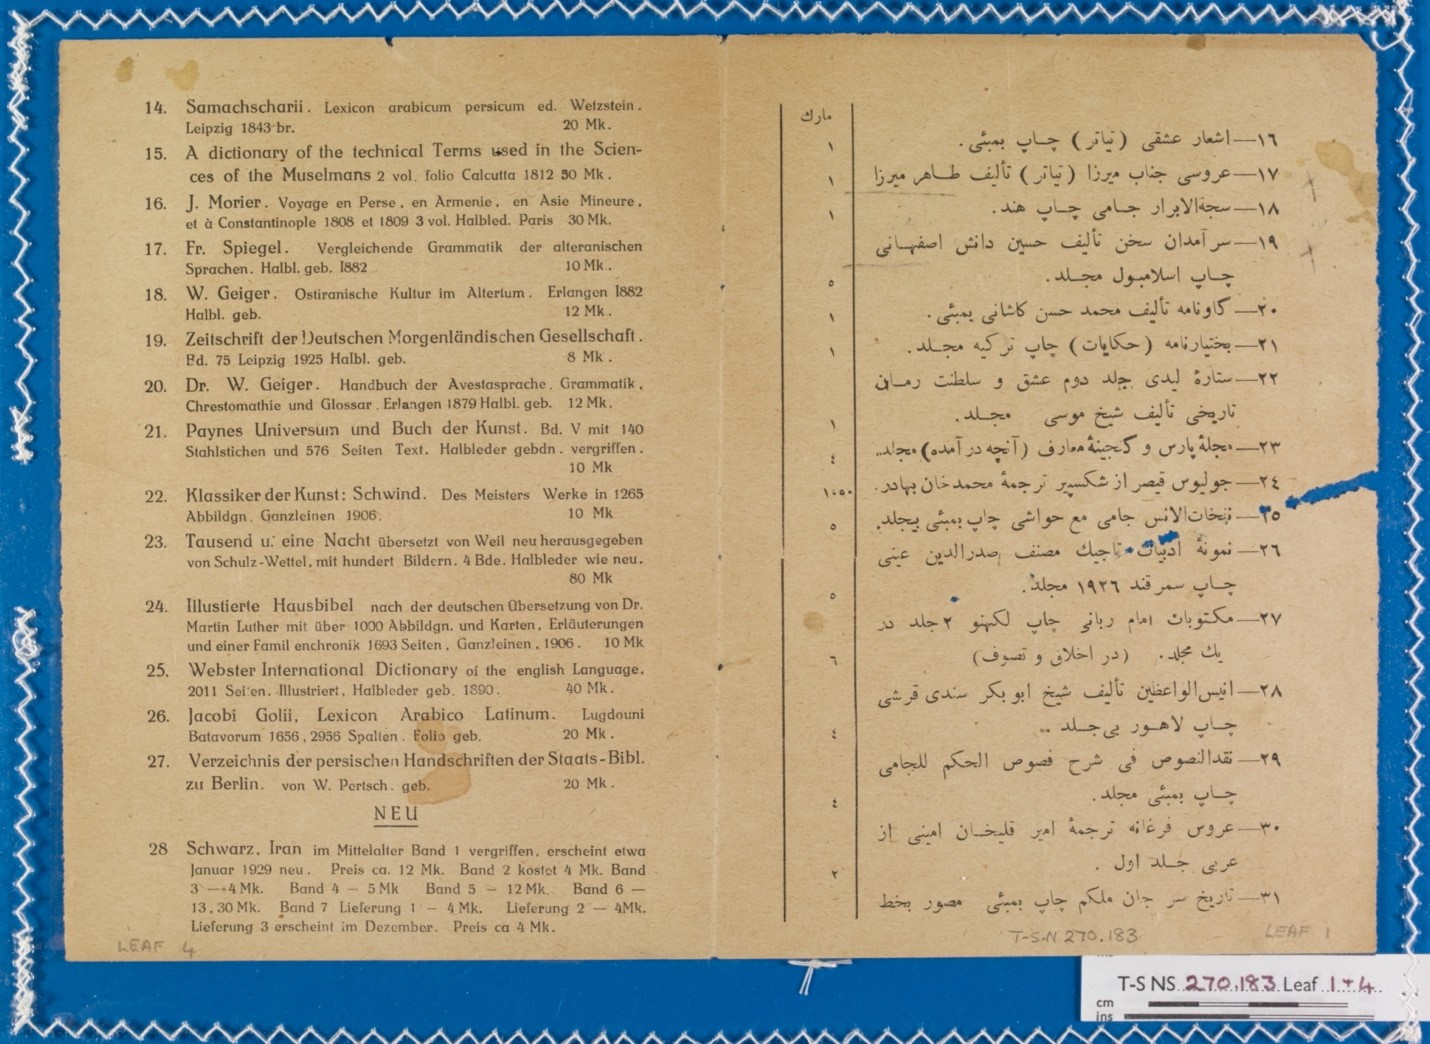 14. Samachscharii. Lexicon arabicum persicum ed. Wetzstein.
Leipzig 1843 br. 20 Mk.
15. A dictionary of the technical Terms used in the Scien-
ces of the Muselmans 2 vol. folio Calcutta 1812 50 Mk.
16. J. Morier. Voyage en Perse, en Armenie, en Asie Mineure,
et à Constantinople 1808 et 1809 3 vol. Halbled. Paris 30 Mk.
17. Fr. Spiegel. Vergleichende Grammatik der alteranischen
Sprachen. Halbl. geb. 1882 10 Mk.
18. W. Geiger. Ostiranische Kultur im Altertum. Erlangen 1882
Halbl. geb. 12 Mk.
19. Zeitschrift der Deutschen Morgenländischen Gesellschaft.
Bd. 75 Leipzig 1925 Halbl. geb. 8 Mk.
20. Dr. W. Geiger. Handbuch der Avestasprache. Grammatik,
Chrestomathie und Glossar. Erlangen 1879 Halbl. geb. 12 Mk.
21. Paynes Universum und Buch der Kunst. Bd. V mit 140
Stahlstichen und 576 Seiten Text. Halbleder gebdn. vergriffen.
10 Mk
22. Klassiker der Kunst: Schwind. Des Meisters Werke in 1265
Abbildgn. Ganzleinen 1906. 10 Mk
23. Tausend u. eine Nacht übersetzt von Weil neu herausgegeben
von Schulz-Wettel, mit hundert Bildern. 4 Bde. Halbleder wie neu.
80 Mk
24. Illustierte Hausbibel nach der deutschen Übersetzung von Dr.
Martin Luther mit über 1000 Abbildgn. und Karten, Erläuterungen
und einer Famil enchronik 1693 Seiten, Ganzleinen, 1906. 10 Mk
25. Webster International Dictionary of the english Language.
2011 Seiten. Illustriert, Halbleder geb. 1890. 40 Mk.
26. Jacobi Golii, Lexicon Arabico Latinum. Lugdouni
Batavorum 1656, 2956 Spalten. Folio geb. 20 Mk.
27. Verzeichnis der persischen Handschriften der Staats-Bibl.
zu Berlin. von W. Pertsch. geb. 20 Mk.
NEU
28 Schwarz, Iran im Mittelalter Band 1 vergriffen, erscheint etwa
Januar 1929 neu. Preis ca. 12 Mk. Band 2 kostet 4 Mk. Band
3 — 4 Mk. Band 4 — 5 Mk Band 5 — 12 Mk. Band 6 —
13,30 Mk. Band 7 Lieferung 1 — 4 Mk. Lieferung 2 — 4 Mk.
Lieferung 3 erscheint im Dezember. Preis ca 4 Mk.
LEAF 4
مارك
١٦—اشعار عشقی (تیاتر) چاپ بمبئی. ١
١٧—عروسی جناب میرزا (تیاتر) تألیف طاهر میرزا ١
١٨—سجةالابرار جامی چاپ هند. ١
١٩—سرآمدان سخن تألیف حسین دانش اصفهانی
چاپ اسلامبول مجلد. ٥
٢٠—گاونامه تألیف محمد حسن کاشانی بمبئی. ١
٢١—بختیارنامه (حکایات) چاپ ترکیه مجلد. ١
٢٢—ستارهٔ لیدی جلد دوم عشق و سلطنت رمان
تاریخی تألیف شیخ موسی مجلد. ١
٢٣—مجلهٔ پارس و گنجینهٔ معارف (آنچه درآمده) مجلد. ٤
٢٤—جولیوس قیصر از شکسپیر ترجمهٔ محمدخان بهادر. ١٠٥٠
٢٥—نفخات‌الانس جامی مع حواشی چاپ بمبئی بیجلد. ٥
٢٦—نمونهٔ ادبیات تاجیك مصنف صدرالدین عینی
چاپ سمرقند ١٩٢٦ مجلد. ٥
٢٧—مکتوبات امام ربانی چاپ لکهنو ٢ جلد در
یك مجلد. (در اخلاق و تصوف) ٦
٢٨—انیس‌الواعظین تألیف شیخ ابو بکر سندی قرشی
چاپ لاهور بی‌جلد .. ٤
٢٩—نقدالنصوص فی شرح فصوص الحکم للجامی
چاپ بمبئی مجلد. ٤
٣٠—عروس فرغانه ترجمهٔ امیر قلیخان امینی از
عربی جلد اول . ٢
٣١—تاریخ سر جان ملکم چاپ بمبئی مصور بخط
T-S-N 270.183
LEAF 1
T-S NS 270.183 Leaf 1+4
cm
ins